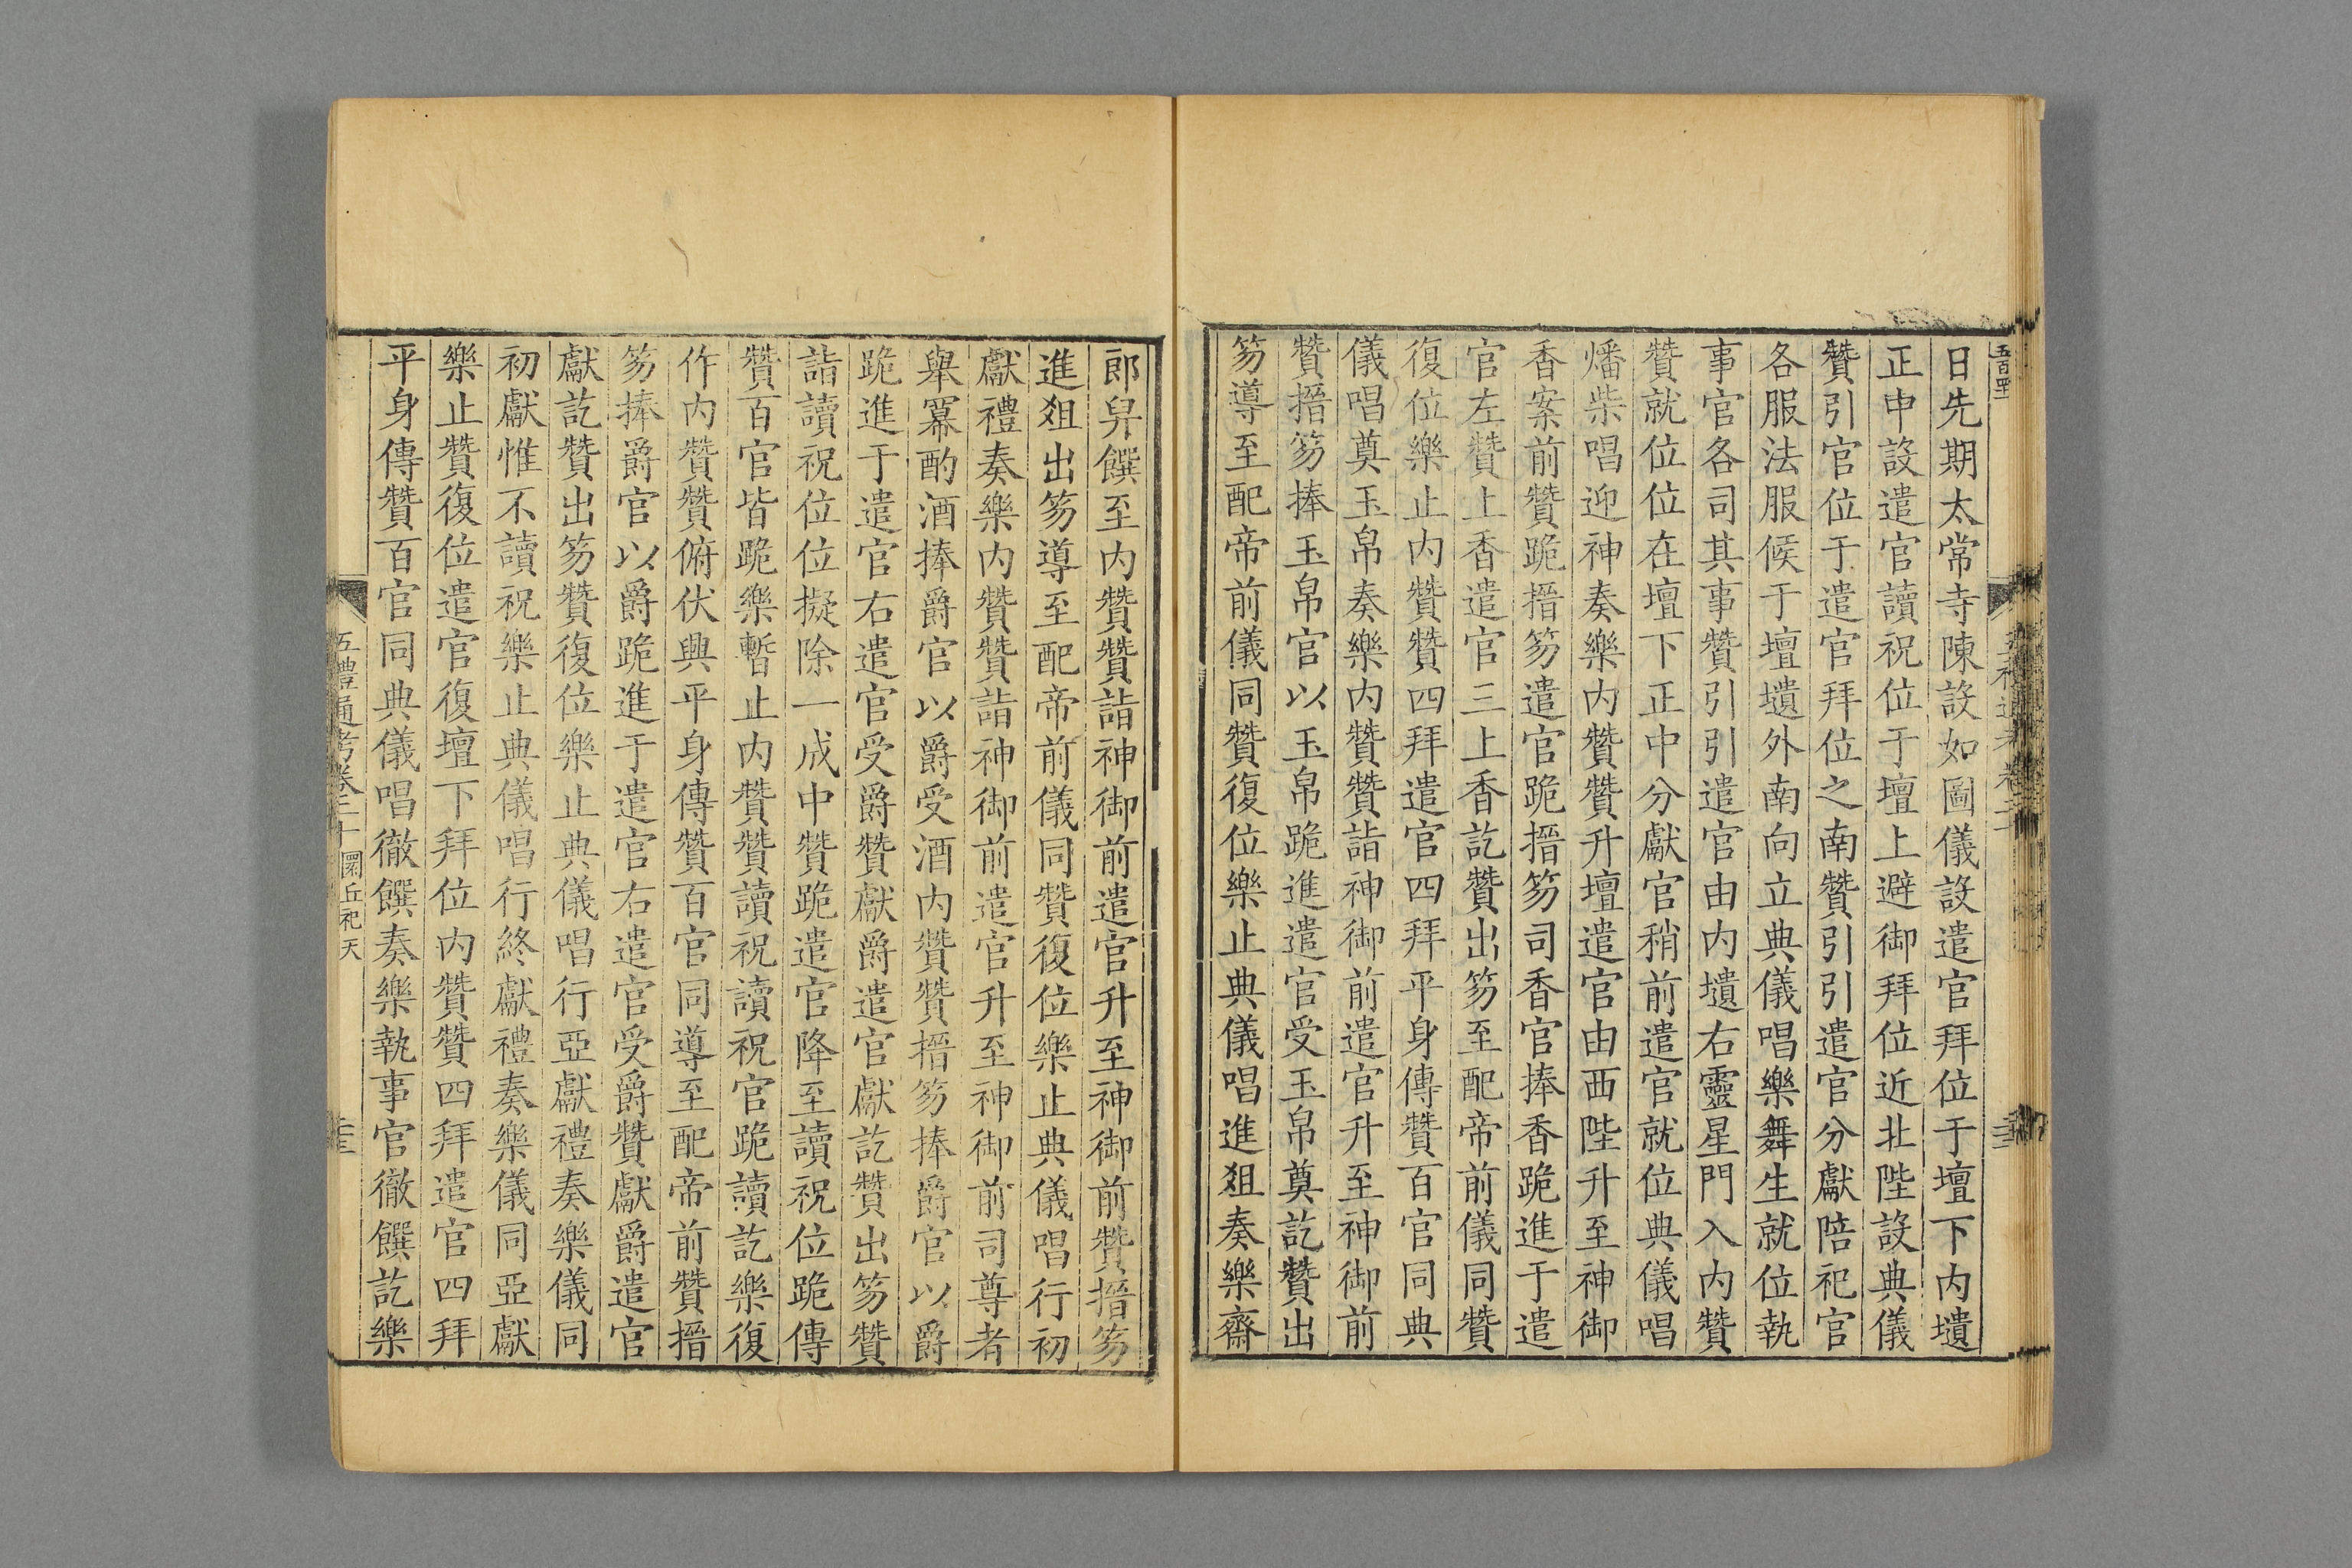 日先期太常寺陳設如圖儀設遣官拜位于壇下內壝
正中設遣官讀祝位于壇上避御拜位近北陛設典儀
贊引官位于遣官拜位之南贊引引遣官分獻陪祀官
各服法服候于壇壝外南向立典儀唱樂舞生就位執
事官各司其事贊引引遣官由內壝右靈星門入內贊
贊就位位在壇下正中分獻官稍前遣官就位典儀唱
燔柴唱迎神奏樂內贊贊升壇遣官由西陛升至神御
香案前贊跪搢笏遣官跪搢笏司香官捧香跪進于遣
官左贊上香遣官三上香訖贊出笏至配帝前儀同贊
復位樂止內贊贊四拜遣官四拜平身傳贊百官同典
儀唱奠玉帛奏樂內贊贊詣神御前遣官升至神御前
贊搢笏捧玉帛官以玉帛跪進遣官受玉帛奠訖贊出
笏導至配帝前儀同贊復位樂止典儀唱進俎奏樂齋
郎舁饌至內贊贊詣神御前遣官升至神御前贊搢笏
進俎出笏導至配帝前儀同贊復位樂止典儀唱行初
獻禮奏樂內贊贊詣神御前遣官升至神御前司尊者
舉冪酌酒捧爵官以爵受酒內贊贊搢笏捧爵官以爵
跪進于遣官右遣官受爵贊獻爵遣官獻訖贊出笏贊
詣讀祝位位擬除一成中贊跪遣官降至讀祝位跪傳
贊百官皆跪樂暫止內贊贊讀祝讀祝官跪讀訖樂復
作內贊贊俯伏興平身傳贊百官同導至配帝前贊搢
笏捧爵官以爵跪進于遣官右遣官受爵贊獻爵遣官
獻訖贊出笏贊復位樂止典儀唱行亞獻禮奏樂儀同
初獻惟不讀祝樂止典儀唱行終獻禮奏樂儀同亞獻
樂止贊復位遣官復壇下拜位內贊贊四拜遣官四拜
平身傳贊百官同典儀唱徹饌奏樂執事官徹饌訖樂
五禮通考卷二十 圜丘祀天